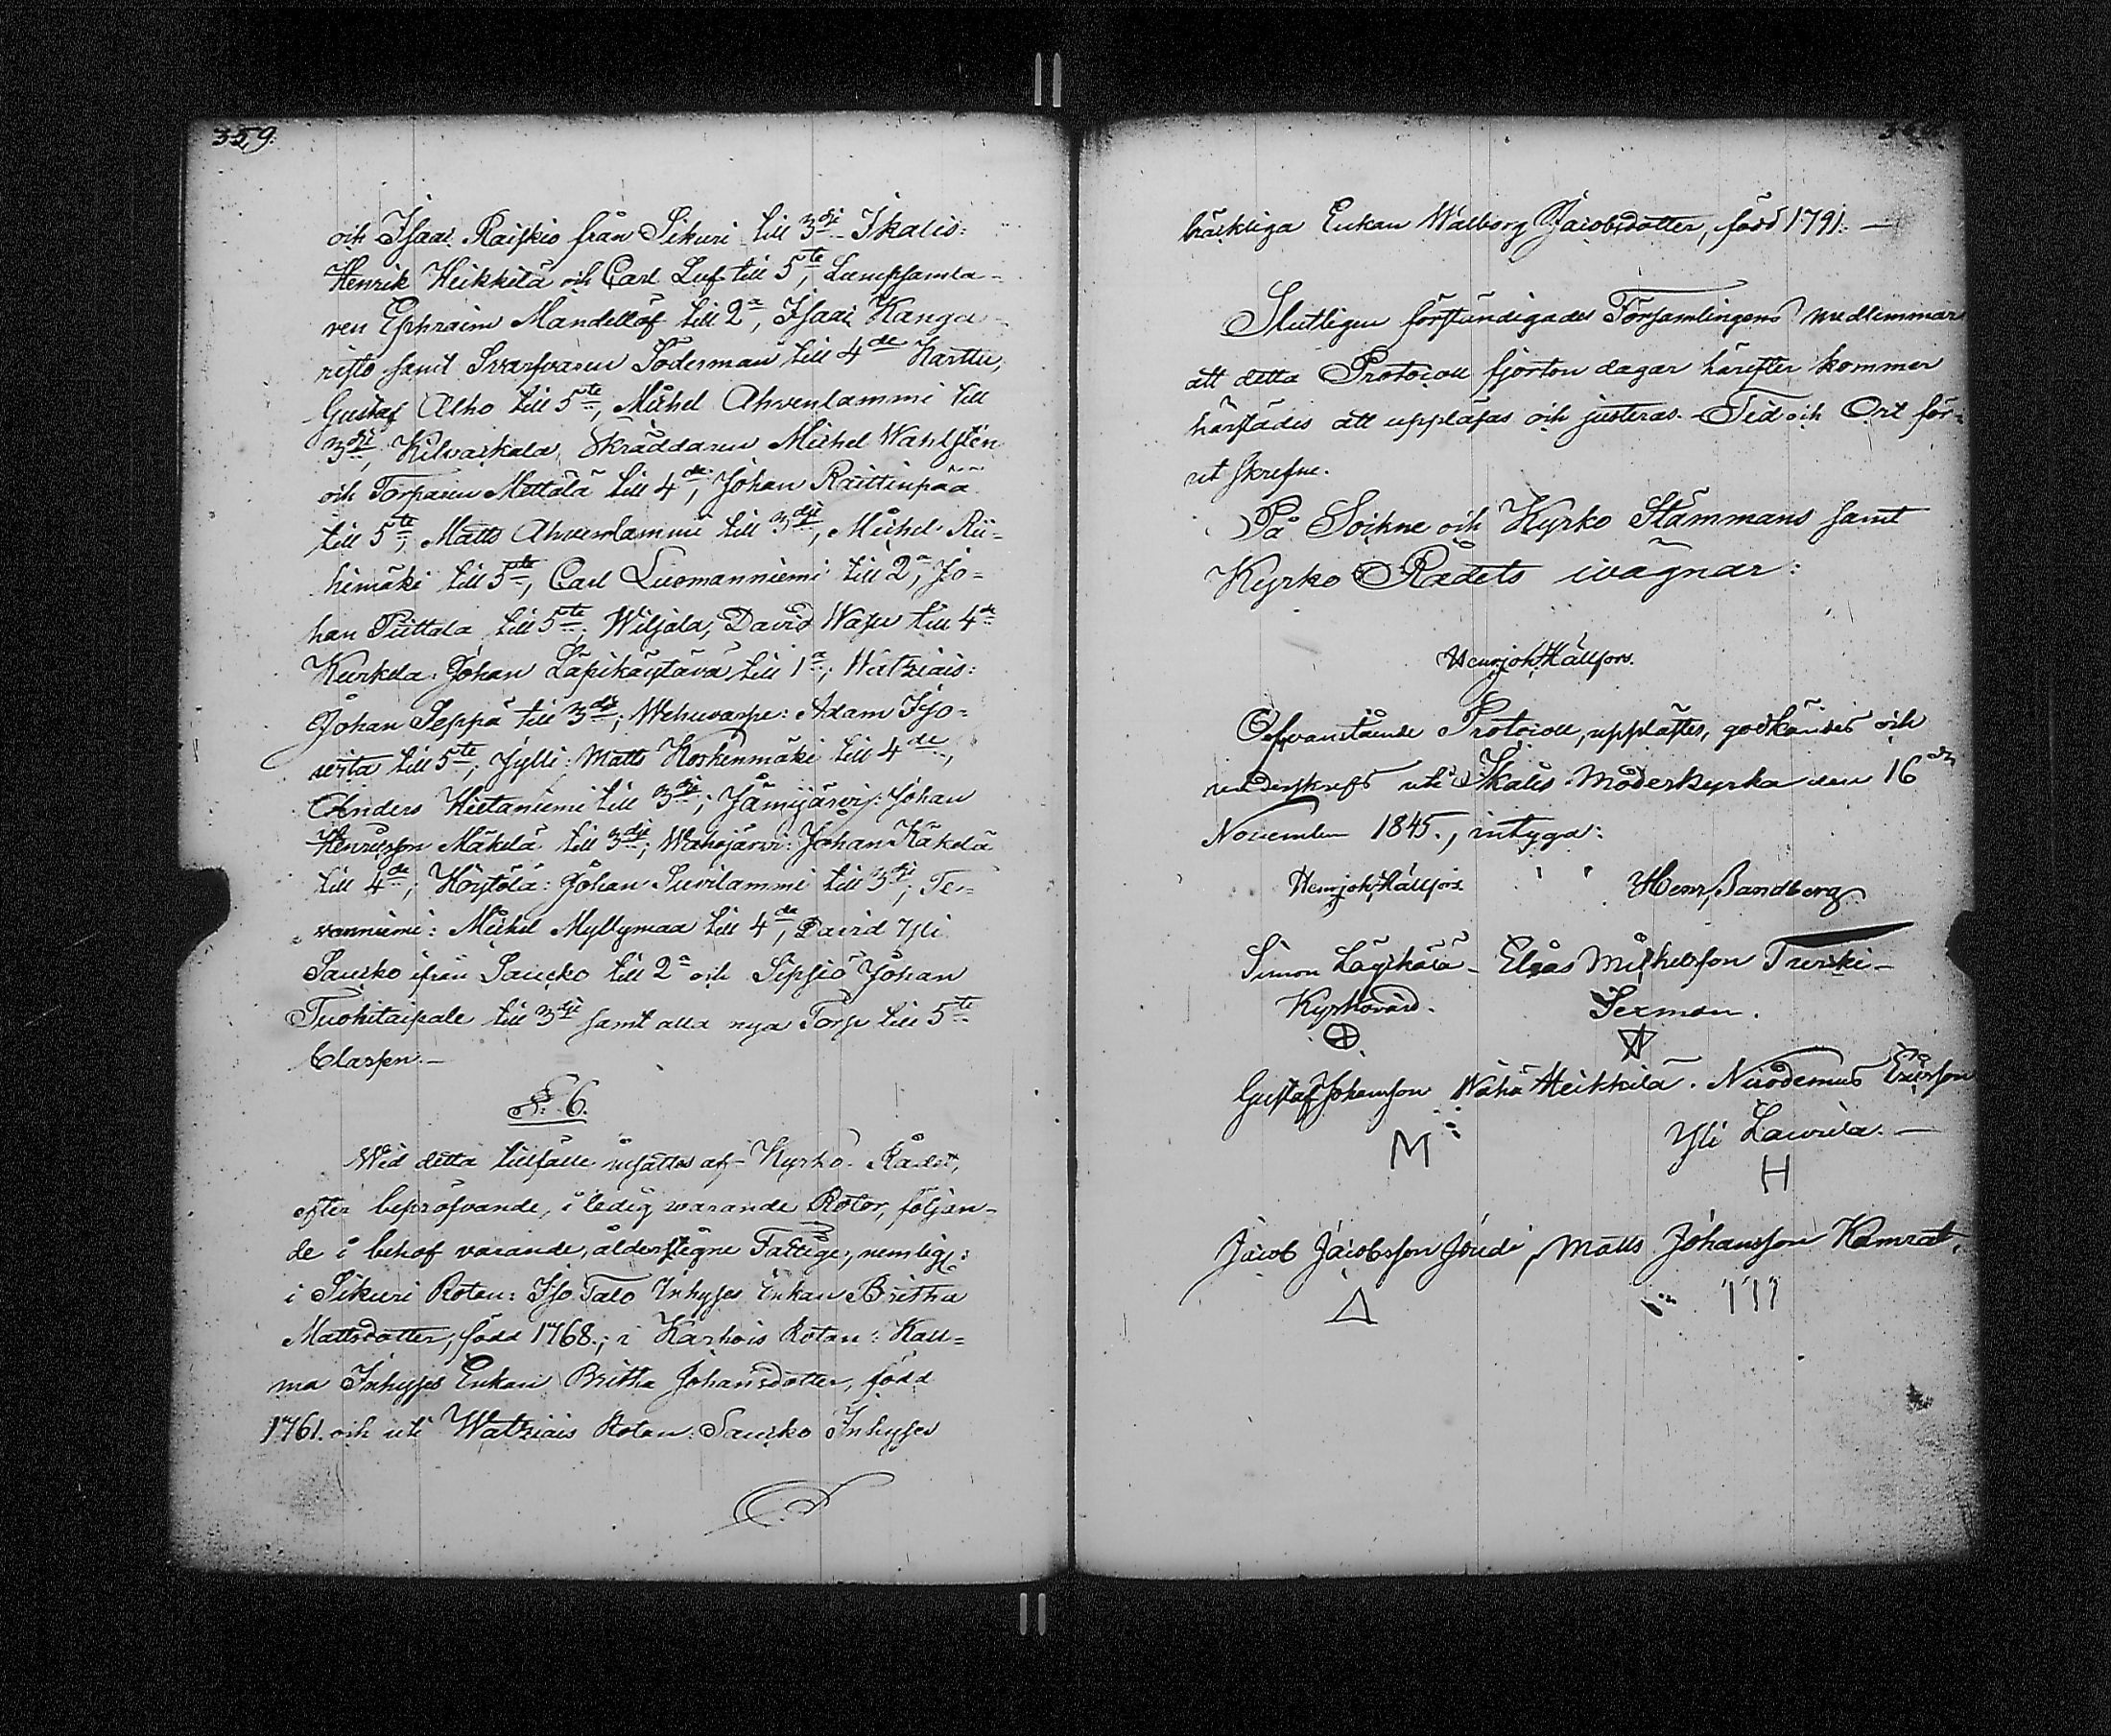 359.
och Isaac Raiskio från Sikuri till 3dje Ikalis:
Henrik Heikkilä och Carl Luf till 5te, Lumpsamla-
ren Ephraim Mandellöf till 2a, Isaac Kanga-
risto samt Svarfvaren Söderman till 4de Karttu,
Gustaf Alho till 5te, Michel Ahvenlammi till
3dje, Kilvaskala, Skräddaren Michel Wahlstén
och Torparen Mettälä till 4de, Johan Raittinpää
till 5te, Matts Ahvenlammi till 3dje, Michel Rii-
himäki till 5te, Carl Luomanniemi till 2a, Jo-
han Puttala till 5te, Wiljala, David Wapu till 4de
Kurkela: Johan Läpikäytävä till 1a; Watziais:
Johan Seppä till 3dje; Wehuvarpe: Adam Iso-
seita till 5te; Jylli: Matts Koskenmäki till 4de,
Anders Hietaniemi till 3dje; Jämijärvi: Johan
Henricsson Mäkelä till 3dje; Wahojärvi: Johan Käkelä
till 4de; Höytölä: Johan Surilammi till 3dje; Ter-
vanniemi: Michel Myllymaa till 4de, David Yli
Saucko ifrån Saucko till 2a och Sipsiö Johan
Tuohitaipale till 3dje samt alla nya Torp till 5te
Classen.—
§. 6.
Wid detta tillfälle insattes af Kyrko-Rådet,
efter bepröfvande, i ledig varande Rotor, följan-
de i behof varande, ålderstegne Fattige, nemlig:
i Sikuri Rotan: Iso Talo Inhyses Enkan Britha
Mattsdotter, född 1768.; i Karhois Rotan: Kall-
ma Inhyses Enkan Britha Johansdotter, född
1761. och uti Watziais Rotan: Saucko Inhyses
bräckliga Enkan Walborg Jacobsdotter, född 1791.—
Slutligen förkundigades Församlingens medlemmar
att detta Protocoll fjorton dagar härefter kommer
härstädes att uppläsas och justeras. Tid och Ort för-
ut skrefne.
På Sockne och Kyrko Stämmans samt
Kyrko Rådets vägnar:
Henr Joh Hällfors.
Ofvanstående Protocoll, upplästes, godkändes och
underskrefs uti Ikalis Moderkyrka den 16de
November 1845., intyga:
Henr Joh Hällfors. Henr Sandberg
Simon Läykälä- Elias Michelsson Turcki-
Kyrkovärd. Sexman.
Gustaf Johansson Wähä Heikkilä. Nicodemus Ericsson
M Yli Laurila.—
H
Jacob Jacobsson Jändi, Matts Johansson Kamrat.